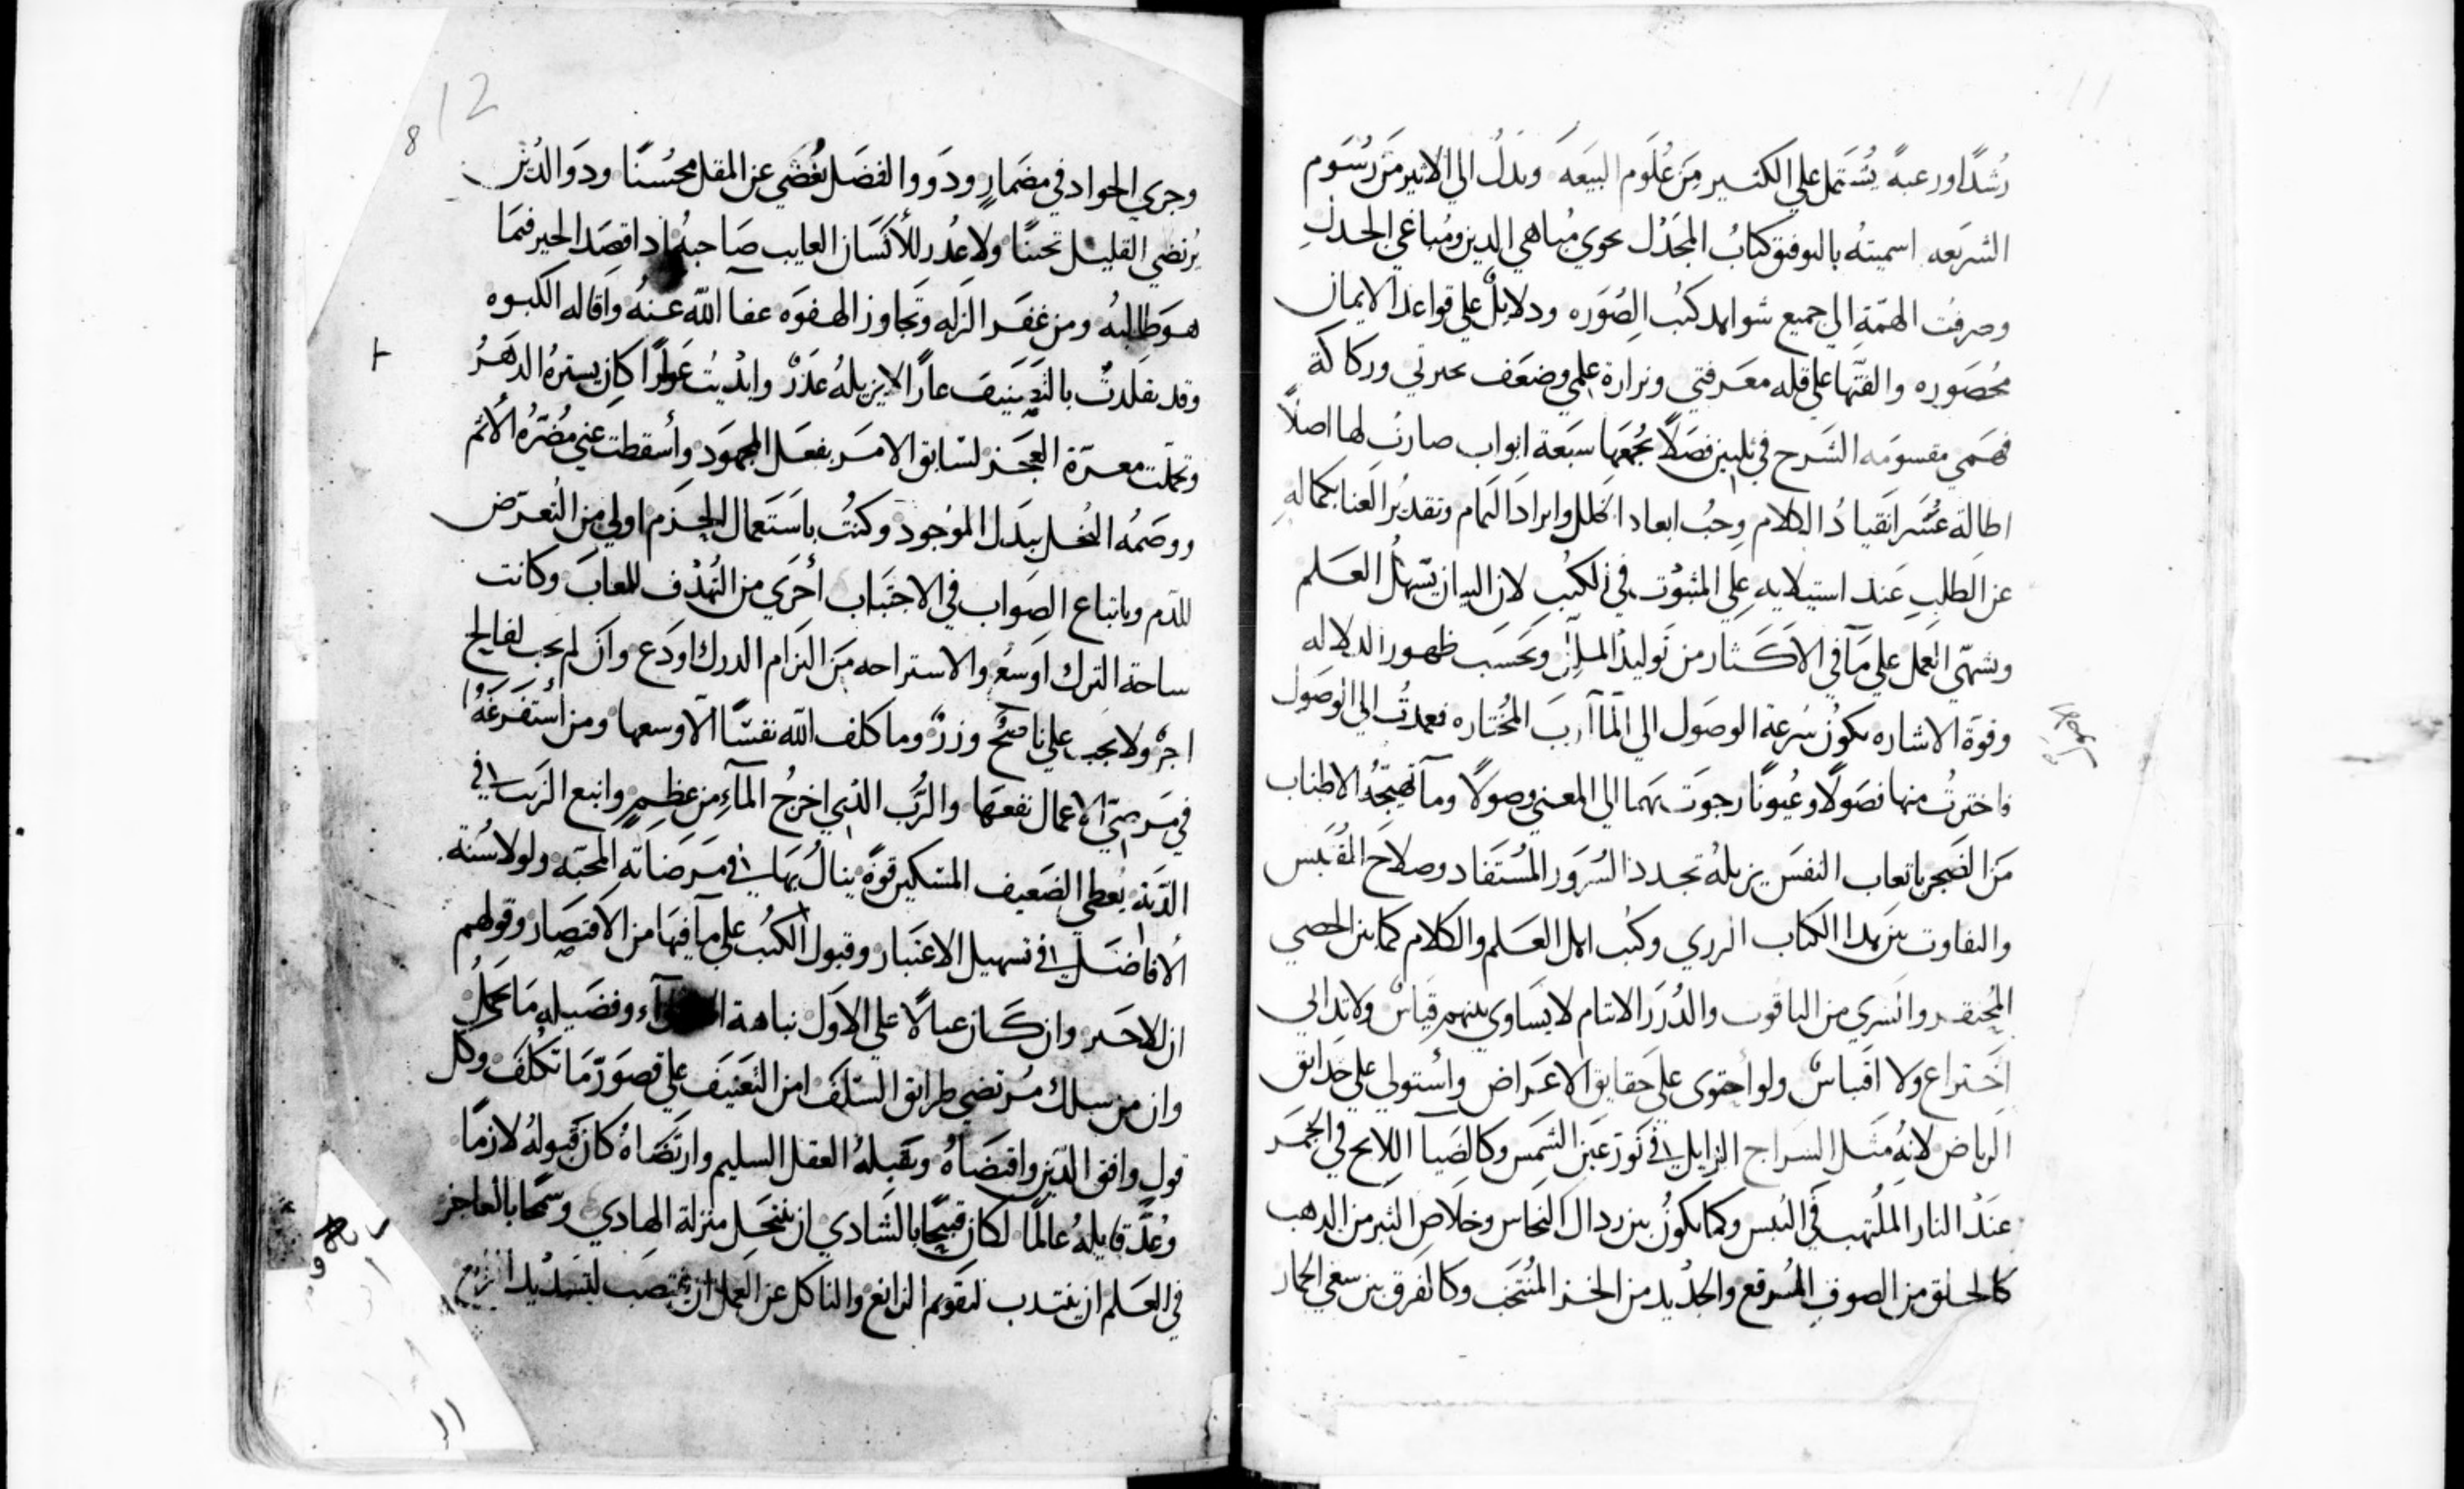 رُشدًا ورعبةً يُشتمل علي الكثير من عُلوم البيعه وتدلُ الي الاثير من رُسوم
الشريعه اسميتهُ بالتوفيق كتابُ المجدل يحوي مُباهي الدين ومُباغي الجدل
وصرفت الهمّة الي جميع شواهد كتب الصُوره ودلايلٌ علي قواعد الايمان
مُحصوره والفتّها علي قله معرفتي ونزارة علمي وضعف خبرتي وركاكة
فهمي مقسومه الشرح في ثلثين فصلًا يجمعها سبعة ابواب صارت لها اصلًا
اطالة عشر انقيادُ الكلام وحبُ ابعاد الخلل وايراد التمام وتقديرُ العنا بكماله
عن الطلب عند استيلايه علي المثبوُت في الكتب لان البيان يسّهلُ العلم
ويشهّي العمل علي مآ في الاكثار من توليد الملل وبحسب ظهور الدلاله
وقوة الاشاره يكوُن سُرعة الوصول الي المآرب المُختاره فعمدتُ الي الوصول
فاخترتُ منها فصولًا وعُيونًا رجوت بهما الي المعني وصولًا ومآ تهيجُهُ الاطناب
من الضجر باتعاب النفس يزيلهُ تجدد السُرور المُستفاد وصلاح المُقتبس
والتفاوت بين هدا الكتاب الزري وكتب اهل العلم والكلام كما بين الحصي
المُحتقر والسَري من الياقوت والدُرر الانتام لا يساوي بينهم قياسٌ ولا تدالي
اختراع ولا اقباسٌ ولو احتوي علي حقايق الاعراض واُستولي علي حدايق
الرياض لانهُ مثل السراج الزايل في نور عين الشمس وكالضيآ اللايح في الجمر
عند النار الملُتهب في اليبس وكما يكوُن بين ردال النحاس وخلاص التبر من الدهب
كالحلق من الصوف المُرقع والجديد من الخز المُنتخب وكالفرق بين سغي الحمار
وجري الجواد في مضمارٍ ودوو الفضل تُغضي عن المقل محسُنًا ودوَ الدين
يُرتضي القليل تحننًا ولا عدر للأنسان العايب صاحبهُ اداقصد الخير فيما
هو طالبهُ ومن غفر الزله وتجاوز الهفوه عفآ اللّه عنهُ واقاله الكبوه
وقد تقلدتُ بالتصنيف عارًا لا يزيلهُ عذرٌ وابديُت عوارًا كان يسترهُ الدهرُ
وتحملت معرّة العجز لسابق الامر بفعل المجهود وأسقطت عني مُضرُه الُاثم
ووصمُه البُخل ببدل الموُجود وكنتُ باستعمال الحزم اولي من التُعرّض
للذم وباتباع الصواب في الاجتباب أحري من التُهدف للمعاب وكانت
ساحة الترك اوسعُ والاستراحه من التزام الدرك اودع وان لم يجب لفالح
اجرٌ ولا يجب علي ناصح وزرٌ وما كلف اللّه نفسًا الّا وسعها ومن أستفرغهُ
في مرضيّ الاعمال نفعها والرُب الدي اخرجُ المآء من عظمٍ وانبع الزيت في
الدبة يُعطي الضعيف المسكين قوةً ينالُ بها في مرضاته المحبّه ولولا سُنة
الُافاضل في تسهيل الاعتبار وقبول الكتبُ علي مآ فيها من الاقتصار وقولهم
ان للاخير وان كان عيالًا علي الاول نباهة وفضيله ما يحملُ
وان من سلك مُرتضي طرايق السلف امن التعنيف علي قصور مّا تكُلف وكل
قول وافق الدّين واقتضاهُ وتقبلهُ العقل السليم وارتضاهُ كان قبولهُ لازمًا
وعُدّ قايلهُ عالمًا لكان قبيحًا بالشادي ان ينتحل منزلة الهادي وسمجًا بالعاجز
في العلم ان ينتدب لتقويم الزايغ والناكل عن العمل ان ينتصب لتسديد